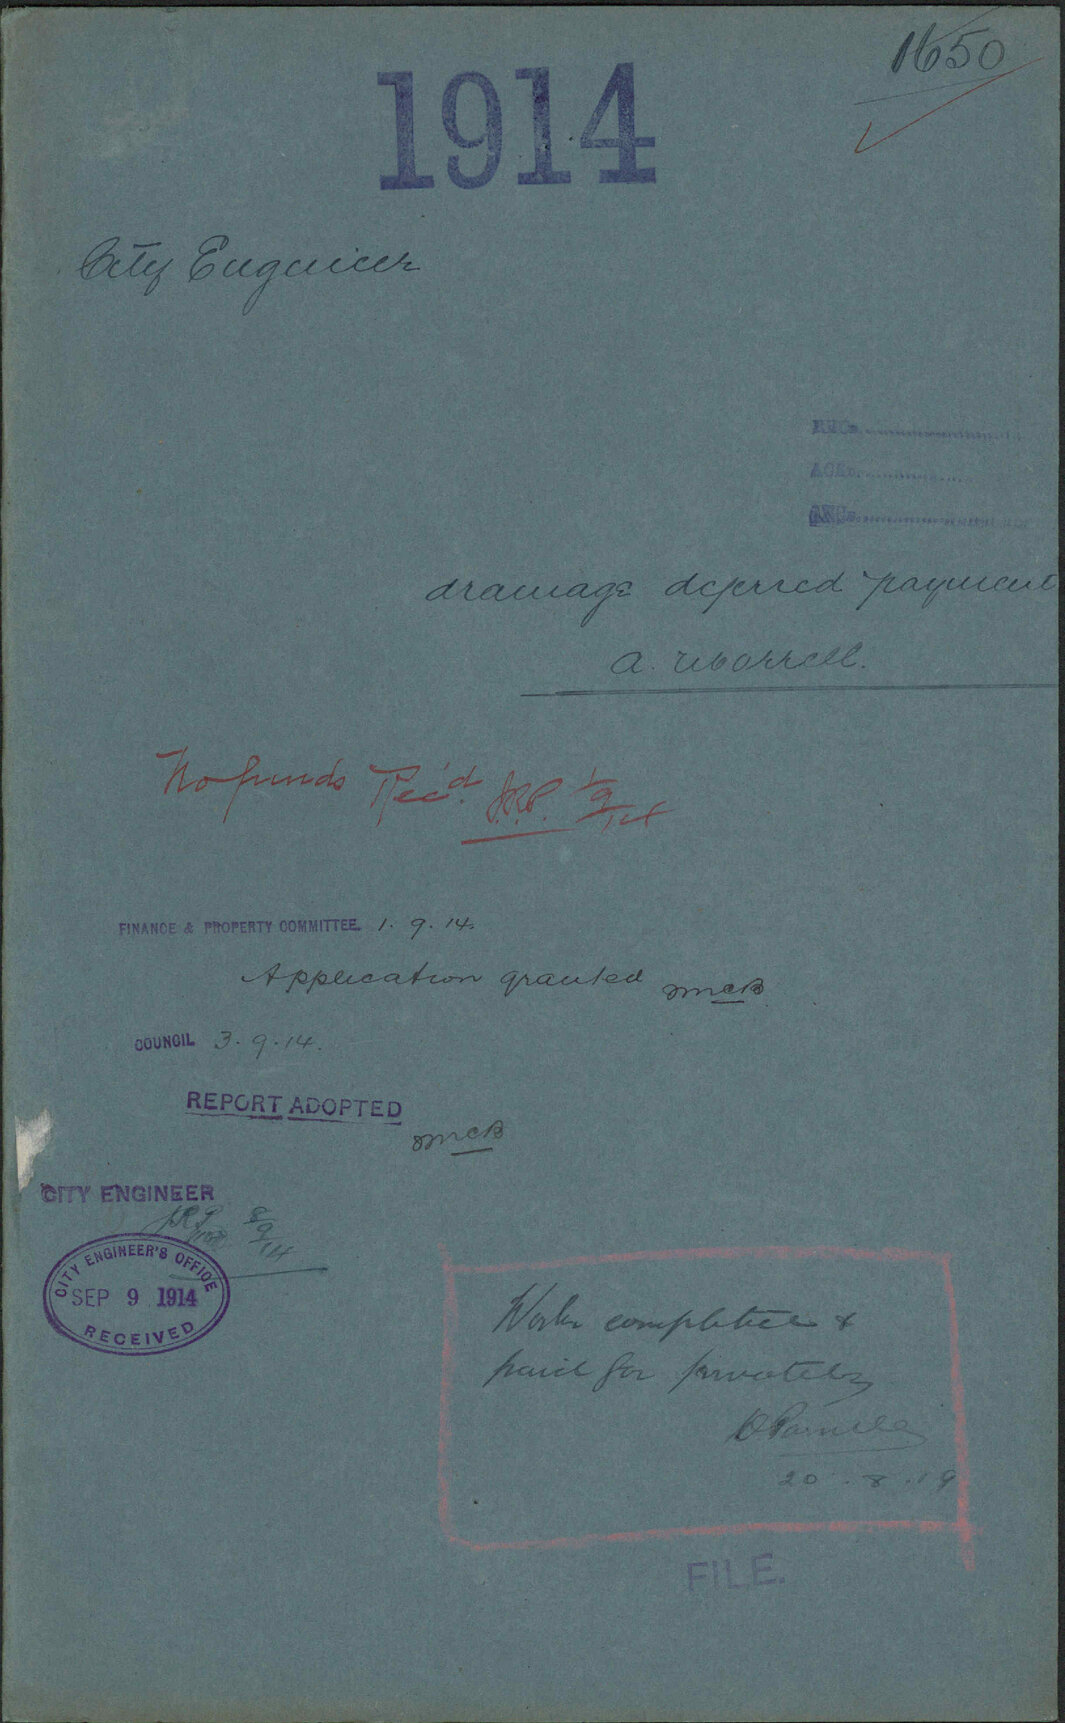 1650
1914
City Engineer
REC.
ACK.
ANS.
drainage deferred payment
A. Worrell.
No funds Rec'd. J.R.P. 1/9/14
FINANCE & PROPERTY COMMITTEE. 1. 9. 14.
Application granted McB
COUNCIL 3. 9. 14.
REPORT ADOPTED
McB
CITY ENGINEER
JRP 8/9/14
CITY ENGINEER'S OFFICE
SEP 9 1914
RECEIVED
Work completed &
paid for privately
20. 8. 19
FILE.